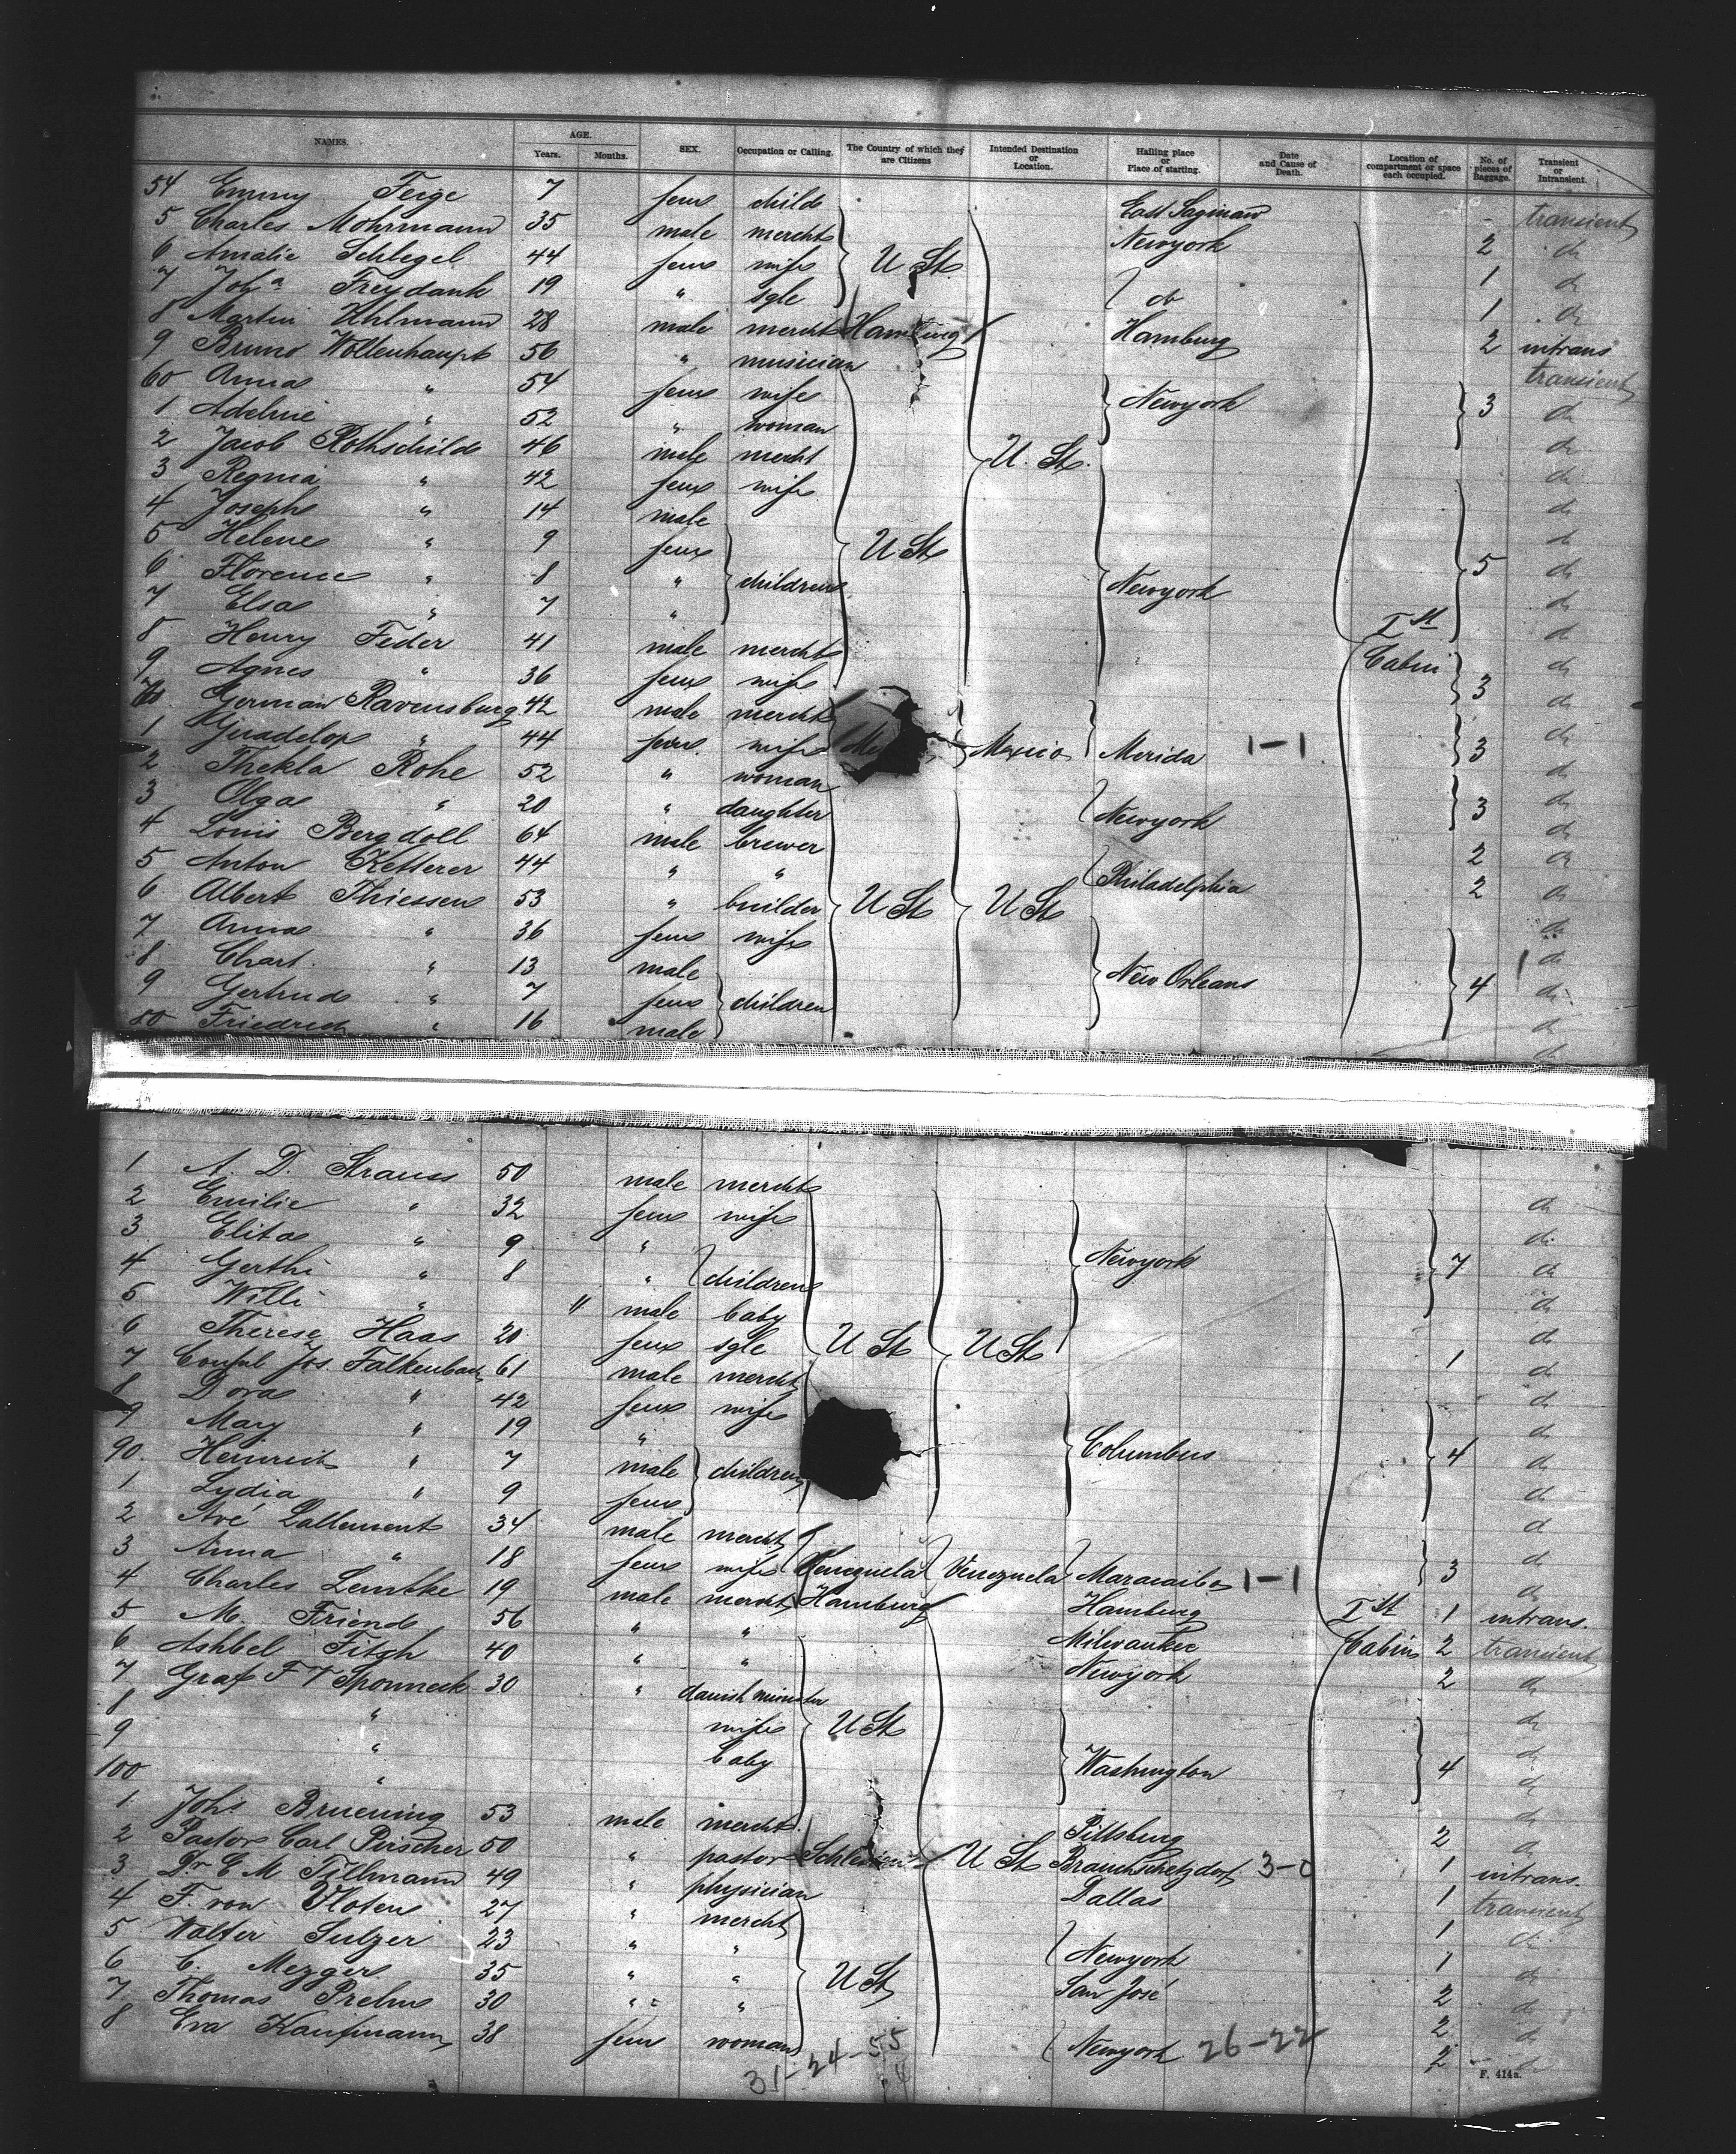 NAMES. AGE. Years. Months. SEX. Occupation or Calling. The Country of which they are Citizens Intended Destination or Location. Hailing place or Place of starting. Date and Cause of Death. Location of compartment or space each occupied. No. of pieces of Baggage. Transient or Intransient.
54 Emmy Feige 7 fem child East Saginaw - transient
5 Charles Mohrmann 35 male mercht Newyork 2 do
6 Amalie Schlegel 44 fem wife U St. 1 do
7 Joha Freydank 19 " sgle do 1 do
8 Martin Uhlmann 28 male mercht Hamburg Hamburg 2 intrans
9 Bruno Wollenhaupt 56 " musician transient
60 Anna " 54 fem wife Newyork 3 do
1 Adeline " 52 " woman do
2 Jacob Rothschild 46 male mercht U. St. do
3 Regina " 42 fem wife do
4 Joseph " 14 male do
5 Helene " 9 fem U St do
6 Florence " 8 " children Newyork 5 do
7 Elsa " 7 " do
8 Henry Feder 41 male mercht Ist do
9 Agnes " 36 fem wife Cabin 3 do
70 German Ravensburg 42 male mercht do
1 Guadelop " 44 fem wife Me Mexico Merida 1-1 3 do
2 Thekla Rohe 52 " woman do
3 Olga " 20 " daughter Newyork 3 do
4 Louis Bergdoll 64 male brewer 2 do
5 Anton Ketterer 44 " " Philadelphia 2 do
6 Albert Thiessen 53 " builder U St U St do
7 Anna " 36 fem wife do
8 Charl. " 13 male New Orleans do
9 Gertrud " 7 fem children 4 do
80 Friedrich " 16 male do
1 A. D. Strauss 50 male mercht do
2 Emilie " 32 fem wife do
3 Elita " 9 " Newyork 7 do
4 Gerthi " 8 " children do
5 Willi " 11 male baby do
6 Therese Haas 20 fem sgle U St U St 1 do
7 Consul Jos. Falkenbach 61 male mercht do
8 Dora " 42 fem wife do
9 Mary " 19 " Columbus 4 do
90. Heinrich " 7 male children do
1 Lydia " 9 fem do
2 Avé Lallement 34 male mercht do
3 Anna " 18 fem wife Venezuela Venezuela Maracaibo 1-1 3 do
4 Charles Lembke 19 male mercht Hamburg Hamburg Ist 1 intrans.
5 M. Friend 56 " " Milwaukee Cabin 2 transient
6 Ashbel Fitch 40 " " Newyork 2 do
7 Graf F T Sponneck 30 " danish minister do
8 " wife U St do
9 " baby Washington 4 do
100 " do
1 Johs Bruening 53 male mercht. Pittsburg 2 do
2 Pastor Carl Pirscher 50 " pastor U St 1 intrans.
3 Dr E M Tillmann 49 " physician Dallas 1 transient
4 F. von Vloten 27 " mercht 1 do
5 Walter Sulzer 23 " " Newyork 1 do
6 C. Mezger 35 " " U St San José 2 do
7 Thomas Prehn 30 " " 2 do
8 Eva Kaufmann 38 fem woman Newyork 26-22 2 do
31-24-55
4
F. 414a.